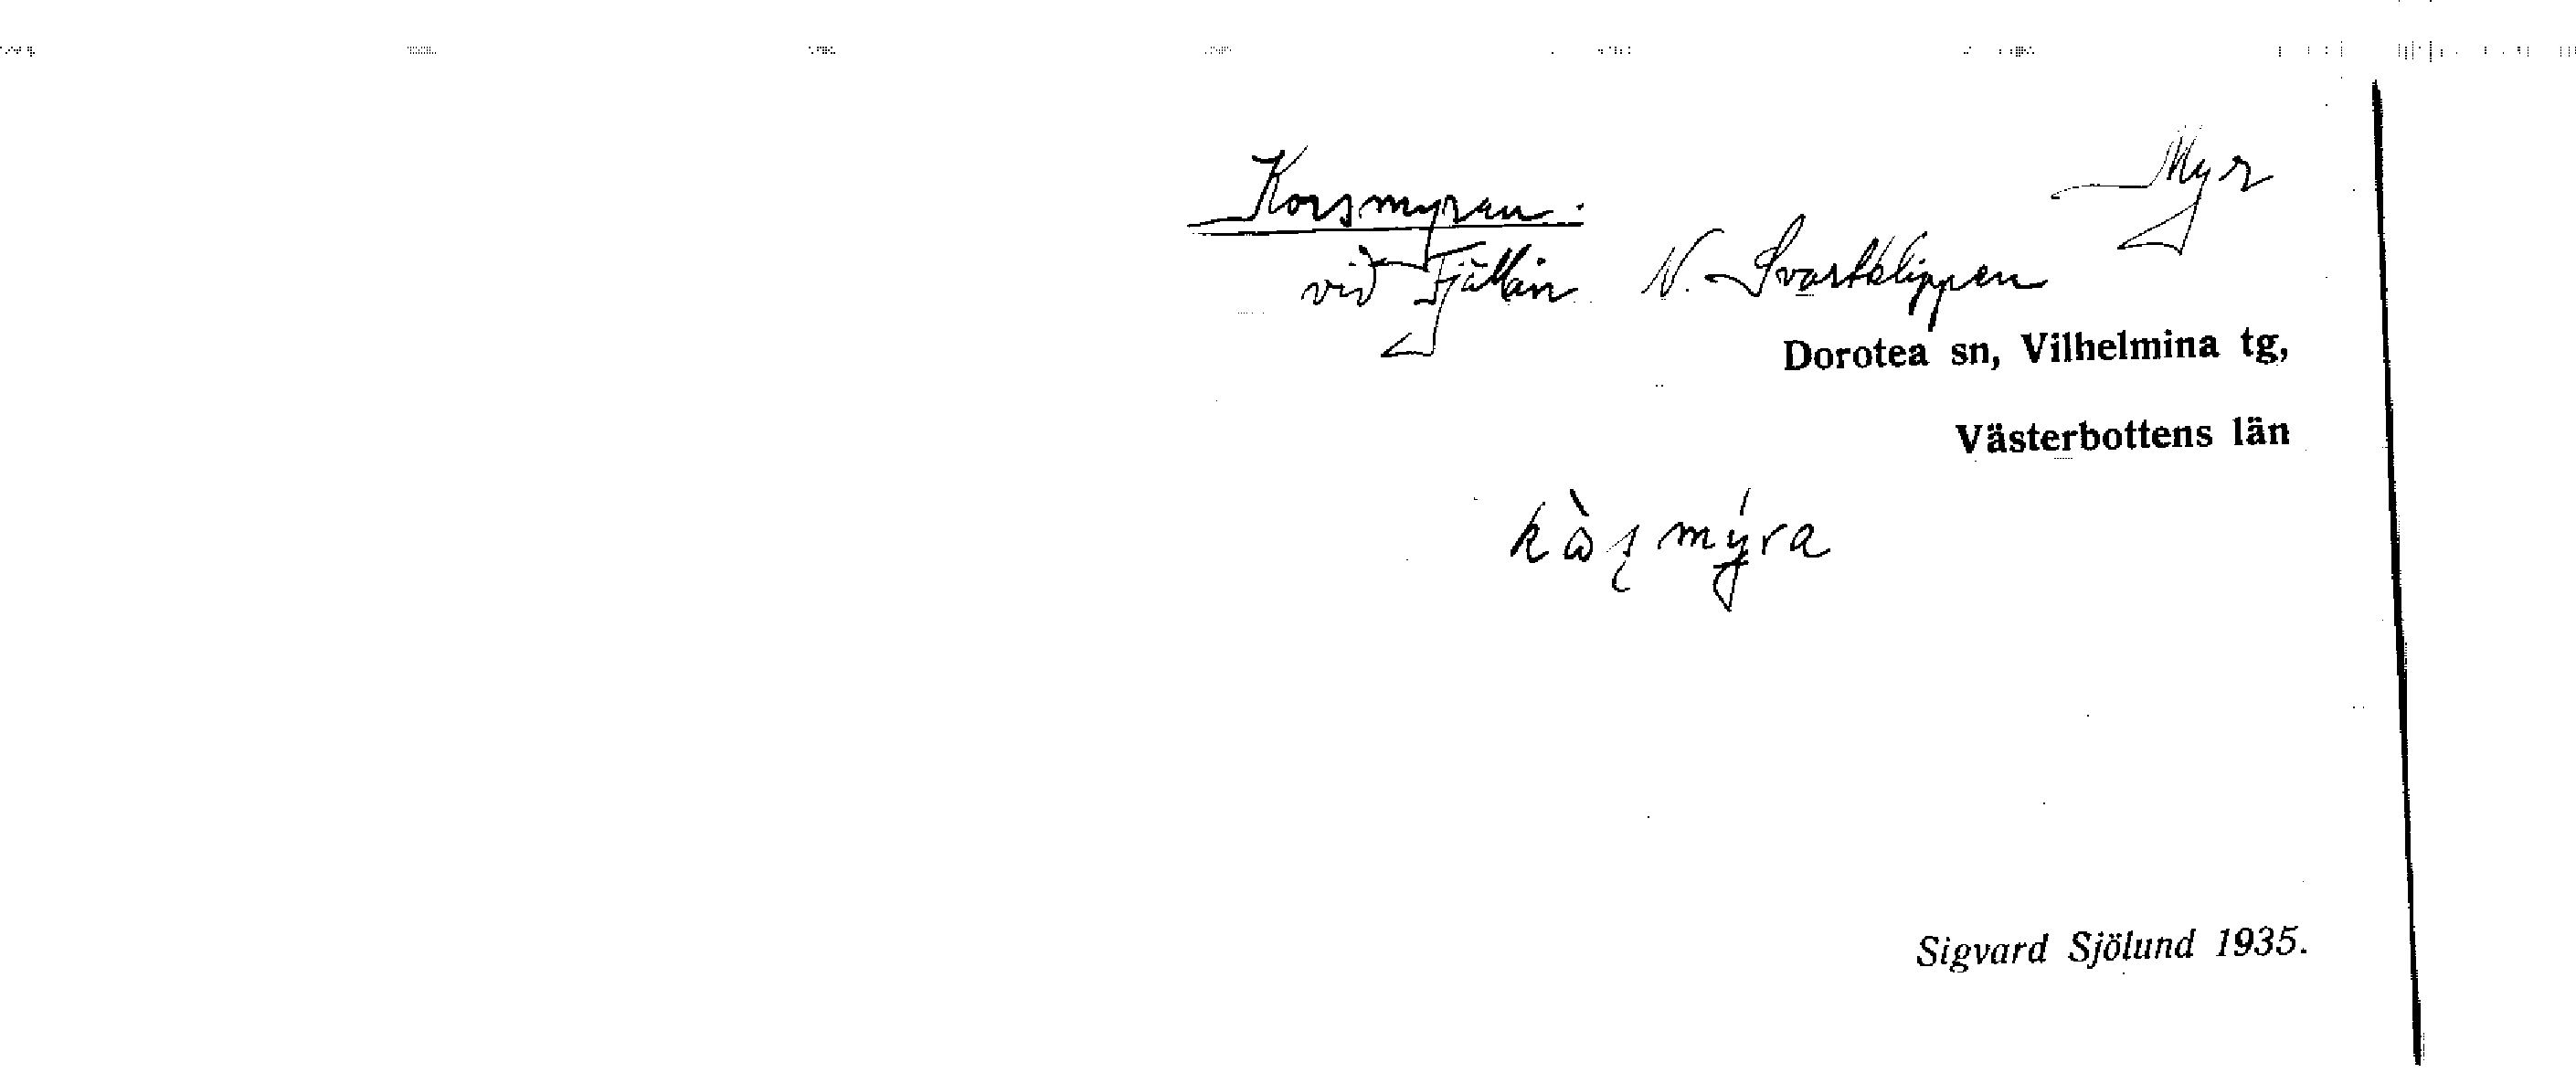 Korsmyren.
Myr
vid Fjällån N. Svartklippen
Dorotea sn, Vilhelmina tg,
Västerbottens län
Sigvard Sjölund 1935.